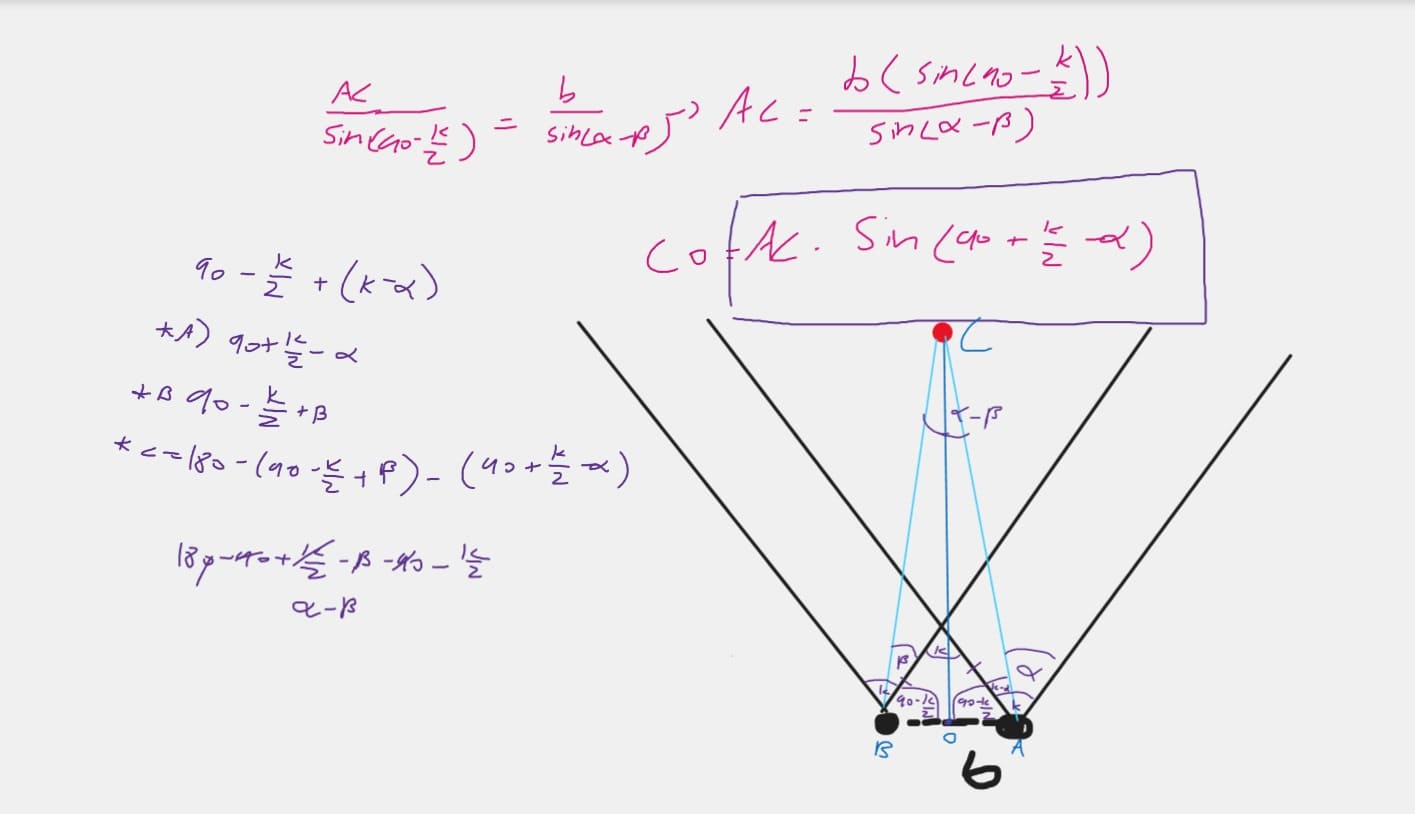 AC/sin(90-k/2) = b/sin(α-β) → AC = b(sin(90-k/2))/sin(α-β)
CO = AC. Sin(90+k/2-α)
90-k/2+(k-α)
*A) 90+k/2-α
*B 90-k/2+β
*C=180-(90-k/2+β)-(90+k/2-α)
180-90+k/2-β-90-k/2
α-β
C
α-β
β k k-α α
k 90-k/2 90-k/2 k
B O A
b